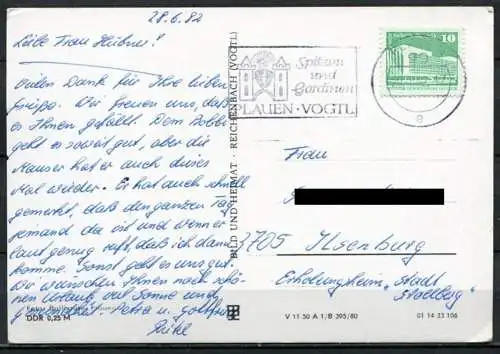 28.6.82
Liebe Frau Hübner!
Vielen Dank für Ihre lieben
Grüße. Wir freuen uns, daß
es Ihnen gefällt. Dem Bobbi
geht es soweit gut, aber die
Mauser hat er auch dieses
Mal wieder. Er hat auch schnell
gemerkt, daß den ganzen Tag
jemand da ist und wenn er
laut genug ruft daß ich dann
komme. Sonst geht es uns gut.
Wir wünschen Ihnen noch schö-
nen Urlaub, viel Sonne und
grüßen Petra u. Gottfried
DDR 0,25 M
BILD UND HEIMAT · REICHENBACH (VOGTL)
Spitzen
und
Gardinen
PLAUEN · VOGTL
10
e
Frau
3705 Ilsenburg
Erholungsheim "Stadt
Stolberg"
V 11 50 A 1/B 395/80
01 14 33 106